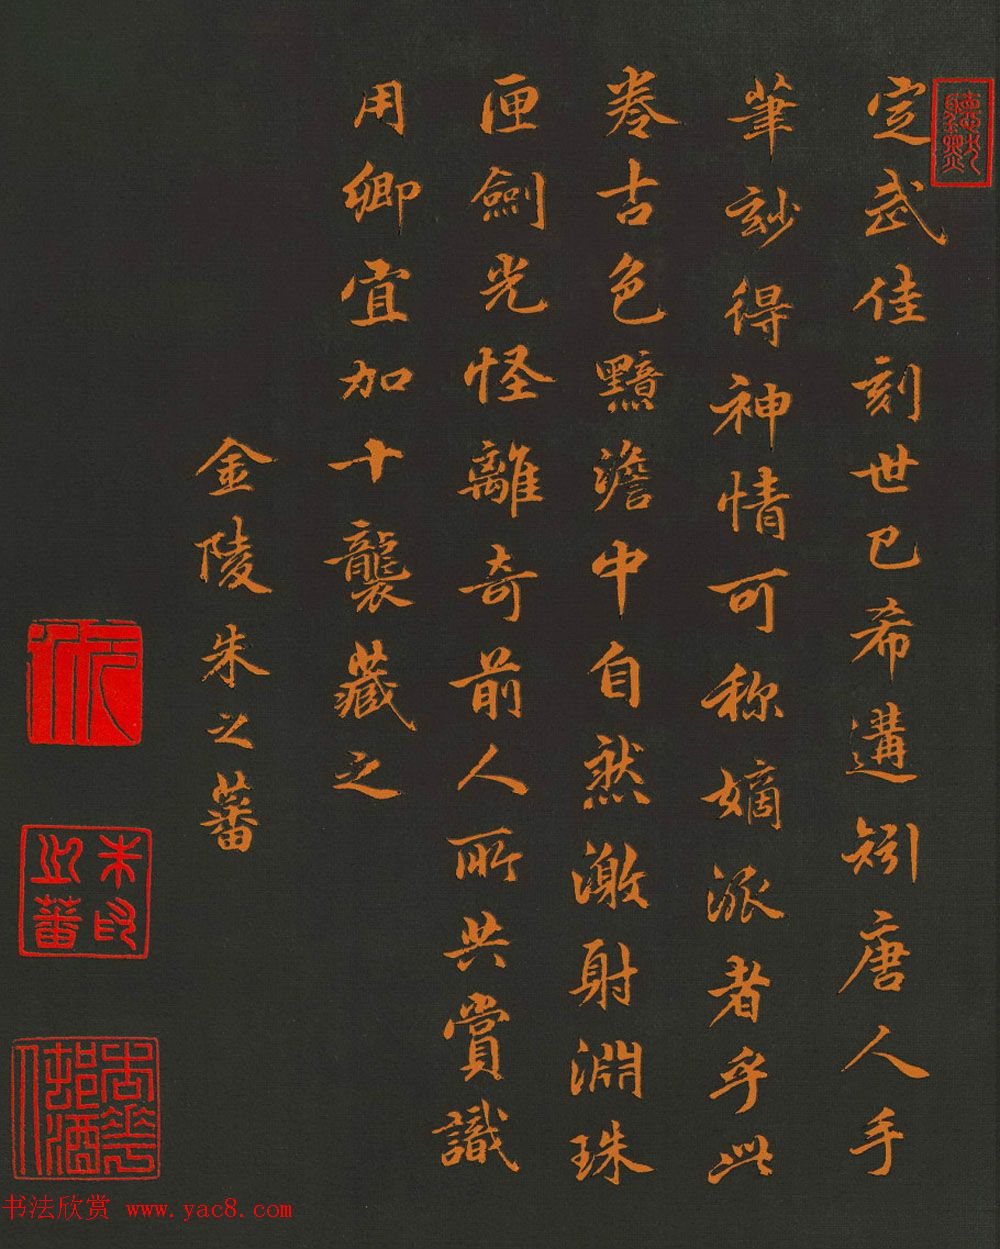 定武佳刻世已希遘矧唐人手
筆玅得神情可称嫡派者乎此
卷古色黯澹中自然激射淵珠
匣劍光怪離奇前人所共賞識
用卿宜加十襲藏之
金陵朱之蕃
朱之蕃印
书法欣赏 www.yac8.com